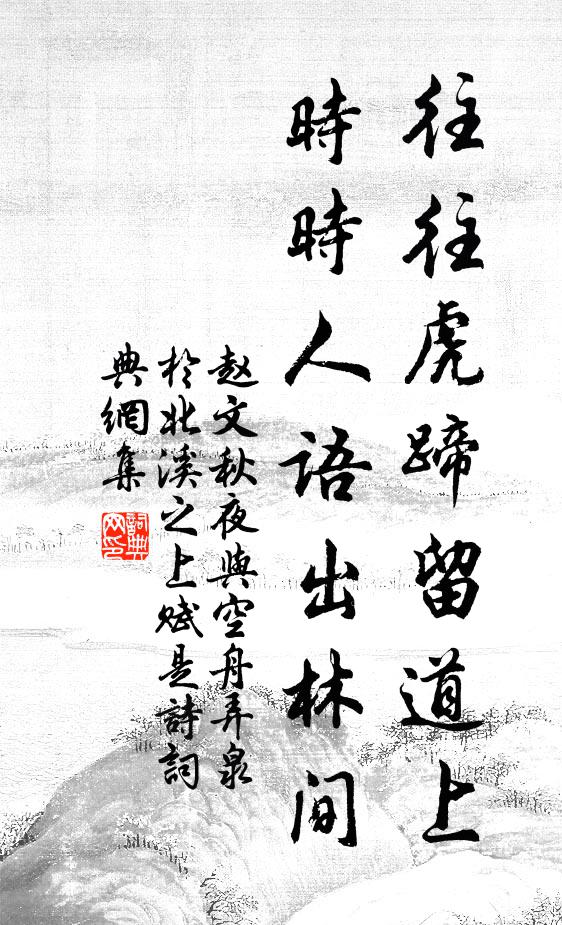 往往虎蹄留道上
時時人語出林間
赵文秋夜與空舟弄泉
於北溪之上赋是詩詞
典網集
詞典
网印